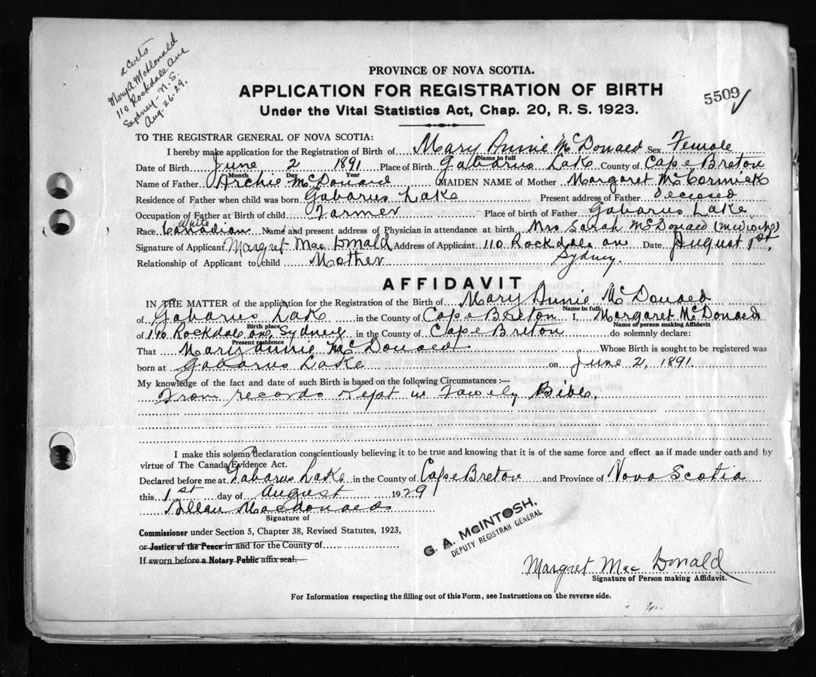 2 Certs
Mary A McDonald
110 Rockdale Ave
Sydney - N.S.
Aug-26-29.
5509 ✓
PROVINCE OF NOVA SCOTIA.
APPLICATION FOR REGISTRATION OF BIRTH
Under the Vital Statistics Act, Chap. 20, R. S. 1923.
TO THE REGISTRAR GENERAL OF NOVA SCOTIA:
I hereby make application for the Registration of Birth of Mary Annie McDonald Sex Female
Name in full
Date of Birth June 2 1891 Place of Birth Gabarus Lake County of Cape Breton
Month Day Year
Name of Father Archie McDonald MAIDEN NAME of Mother Margaret McCormick
Residence of Father when child was born Gabarus Lake Present address of Father Deceased
Occupation of Father at Birth of child Farmer Place of birth of Father Gabarus Lake
Race White Canadian Name and present address of Physician in attendance at birth Mrs Sarah McDonald (midwife)
Signature of Applicant Margret Mac Donald Address of Applicant 110 Rockdale ave Date August 1st,
Relationship of Applicant to child Mother Sydney.
AFFIDAVIT
IN THE MATTER of the application for the Registration of the Birth of Mary Annie McDonald
Name in full
of Gabarus Lake in the County of Cape Breton I, Margaret McDonald
Birth place Name of person making Affidavit
of 110 Rockdale ave Sydney in the County of Cape Breton do solemnly declare:
Present residence
That Mary Annie McDonald Whose Birth is sought to be registered was
born at Gabarus Lake on June 2, 1891
My knowledge of the fact and date of such Birth is based on the following Circumstances :—
From records Kept in Family Bible.
I make this solemn declaration conscientiously believing it to be true and knowing that it is of the same force and effect as if made under oath and by
virtue of The Canada Evidence Act.
Declared before me at Gabarus Lake in the County of Cape Breton and Province of Nova Scotia
this 1st day of August 1929
Allan Macdonald
Signature of
Commissioner under Section 5, Chapter 38, Revised Statutes, 1923,
or Justice of the Peace in and for the County of
If sworn before a Notary Public affix seal.
G. A. McINTOSH,
DEPUTY REGISTRAR GENERAL
Margret Mac Donald
Signature of Person making Affidavit.
For Information respecting the filling out of this Form, see Instructions on the reverse side.